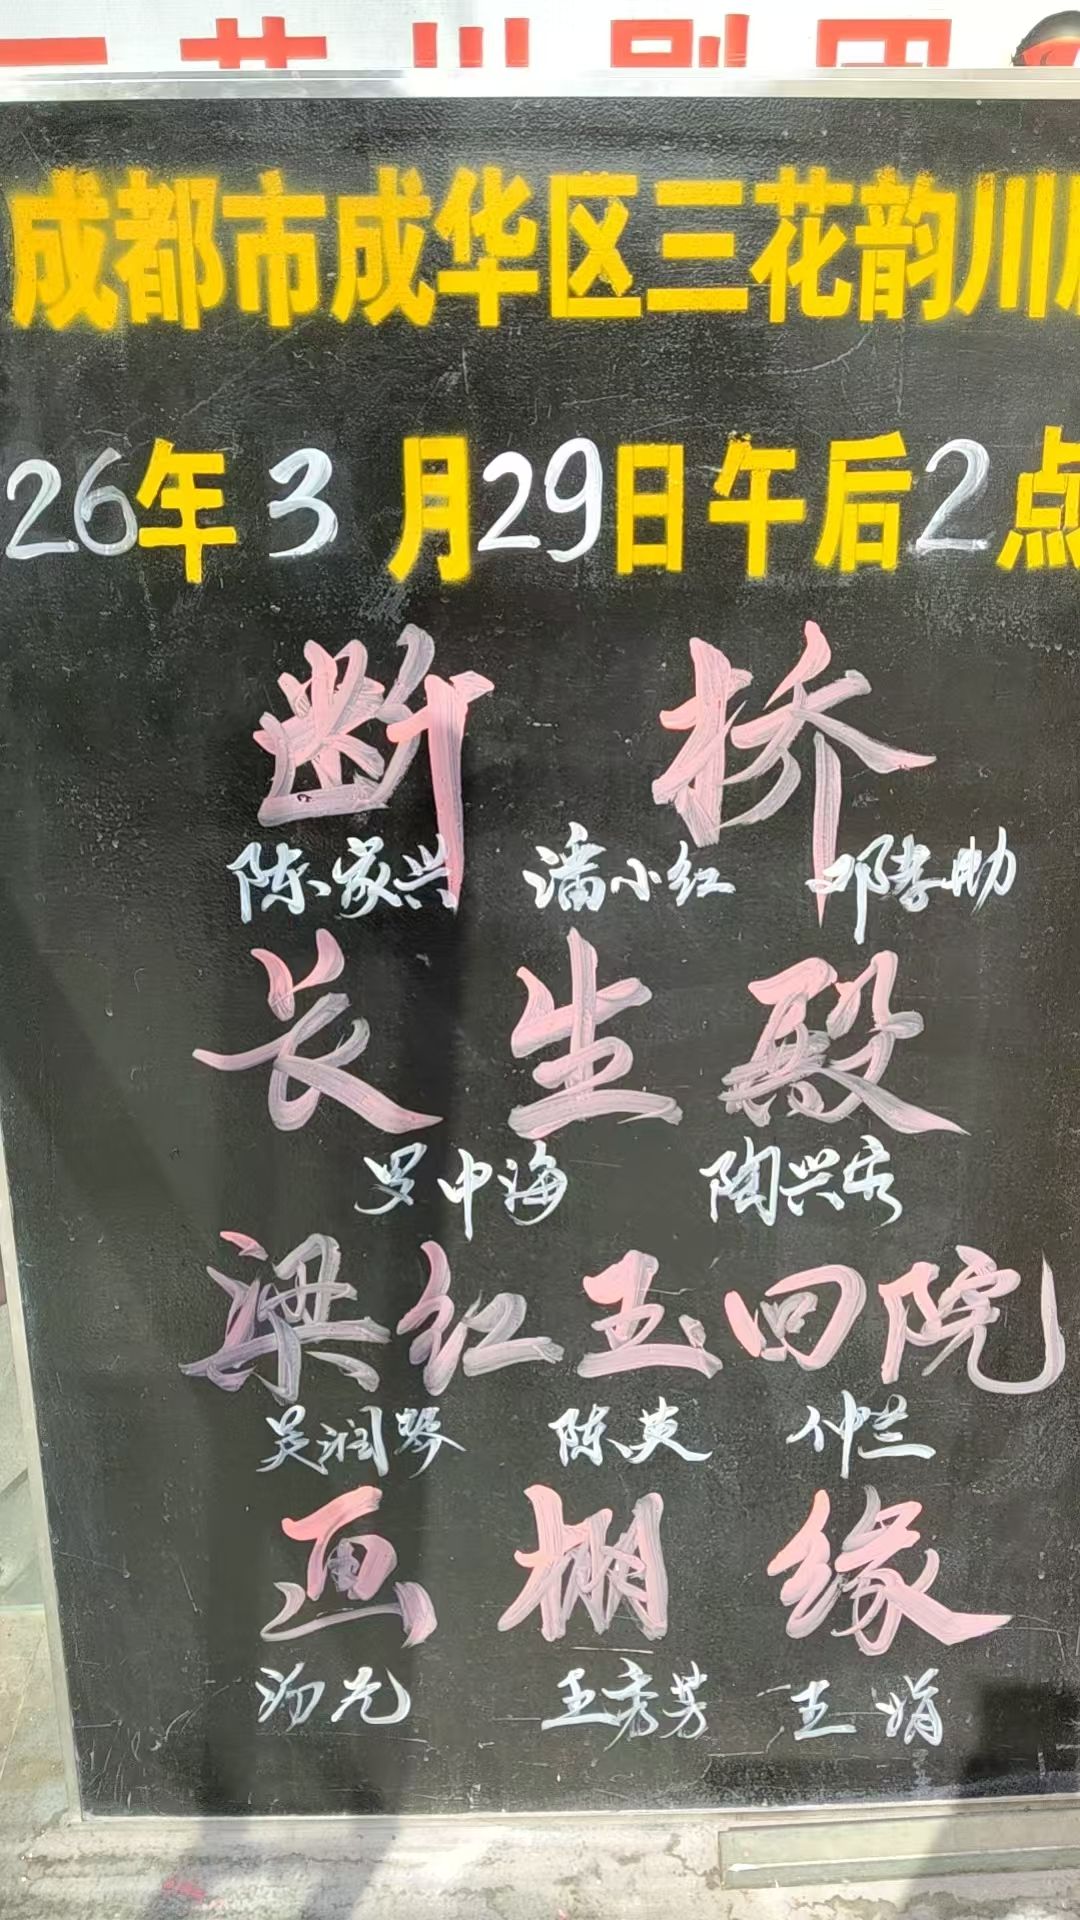 成都市成华区三花韵川
26年3月29日午后2点
断桥
陈家兴 潘小红 邓孝助
长生殿
罗中海 陶兴容
梁红玉回院
吴润琴 陈英 仲兰
画棚缘
汤元 王秀芳 王娟